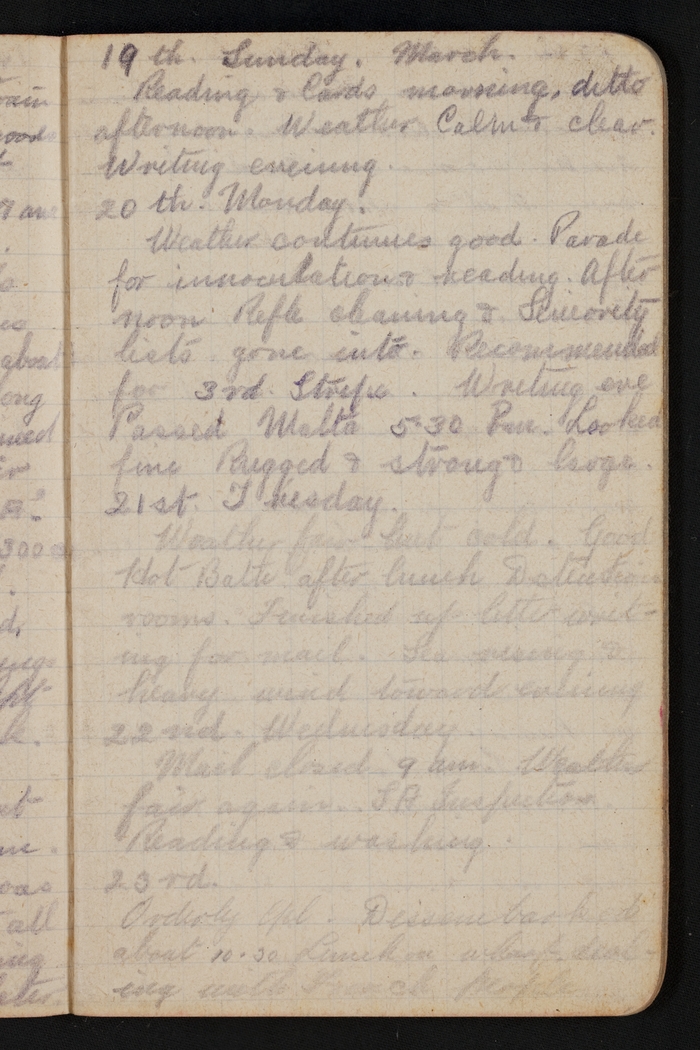 19th. Sunday. March.
Reading & Cards morning, ditto
afternoon. Weather Calm & clear.
Writing eveinng.
20th. Monday.
Weather continues good. Parade
for innoculation & reading. After
noon Rifle cleaning & Seniority
lists gone into. Recommended
for 3rd. Stripe. Writing eve
Passed Malta 5-30 P.m. Looked
fine Rugged & strong & large.
21st. Tuesday.
Weather fair but cold. Good
Hot Bath after lunch
rooms. Finished up letter writ-
ing for mail. Sea rising &
heavy wind toward evening
22nd. Wednesday.
Mail closed 9 am. Weather
fair again. Inspection.
Reading & washing.
23rd.
Orderly Cpl. Dissembarked
about 10-30 Lunch on wharf
ing with French People